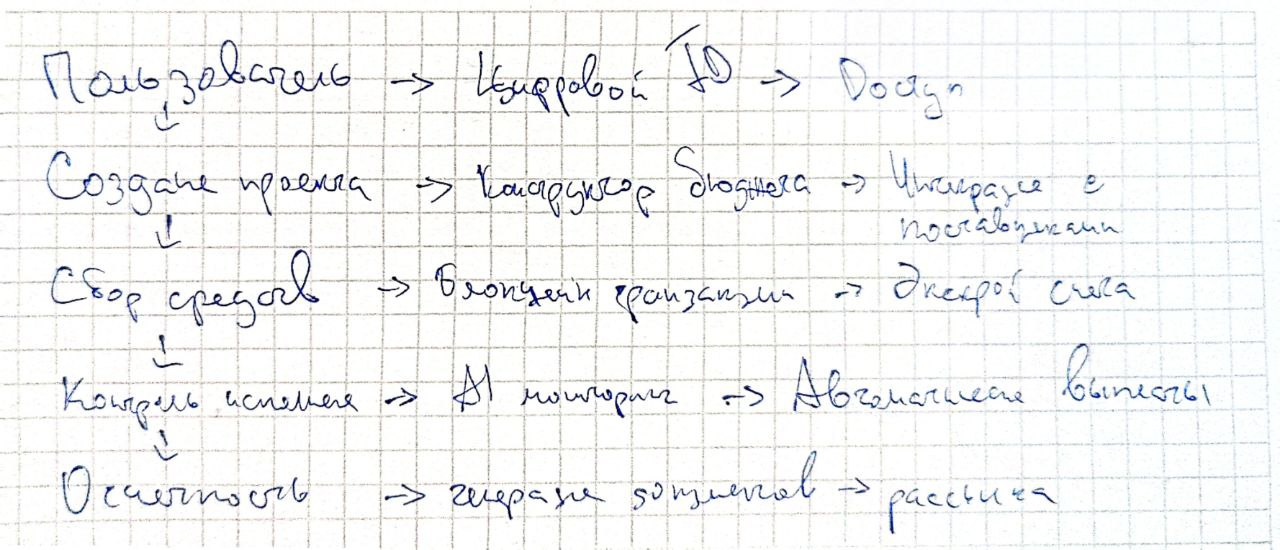 Пользователь → Цифровой ID → Доступ
↓
Создание проекта → Конструктор бюджета → Интеграция с
поставщиками
↓
Сбор средств → Блокчейн транзакции → Эскроу счета
↓
Контроль исполнения → AI мониторинг → Автоматические выплаты
↓
Отчетность → генерация документов → рассылка